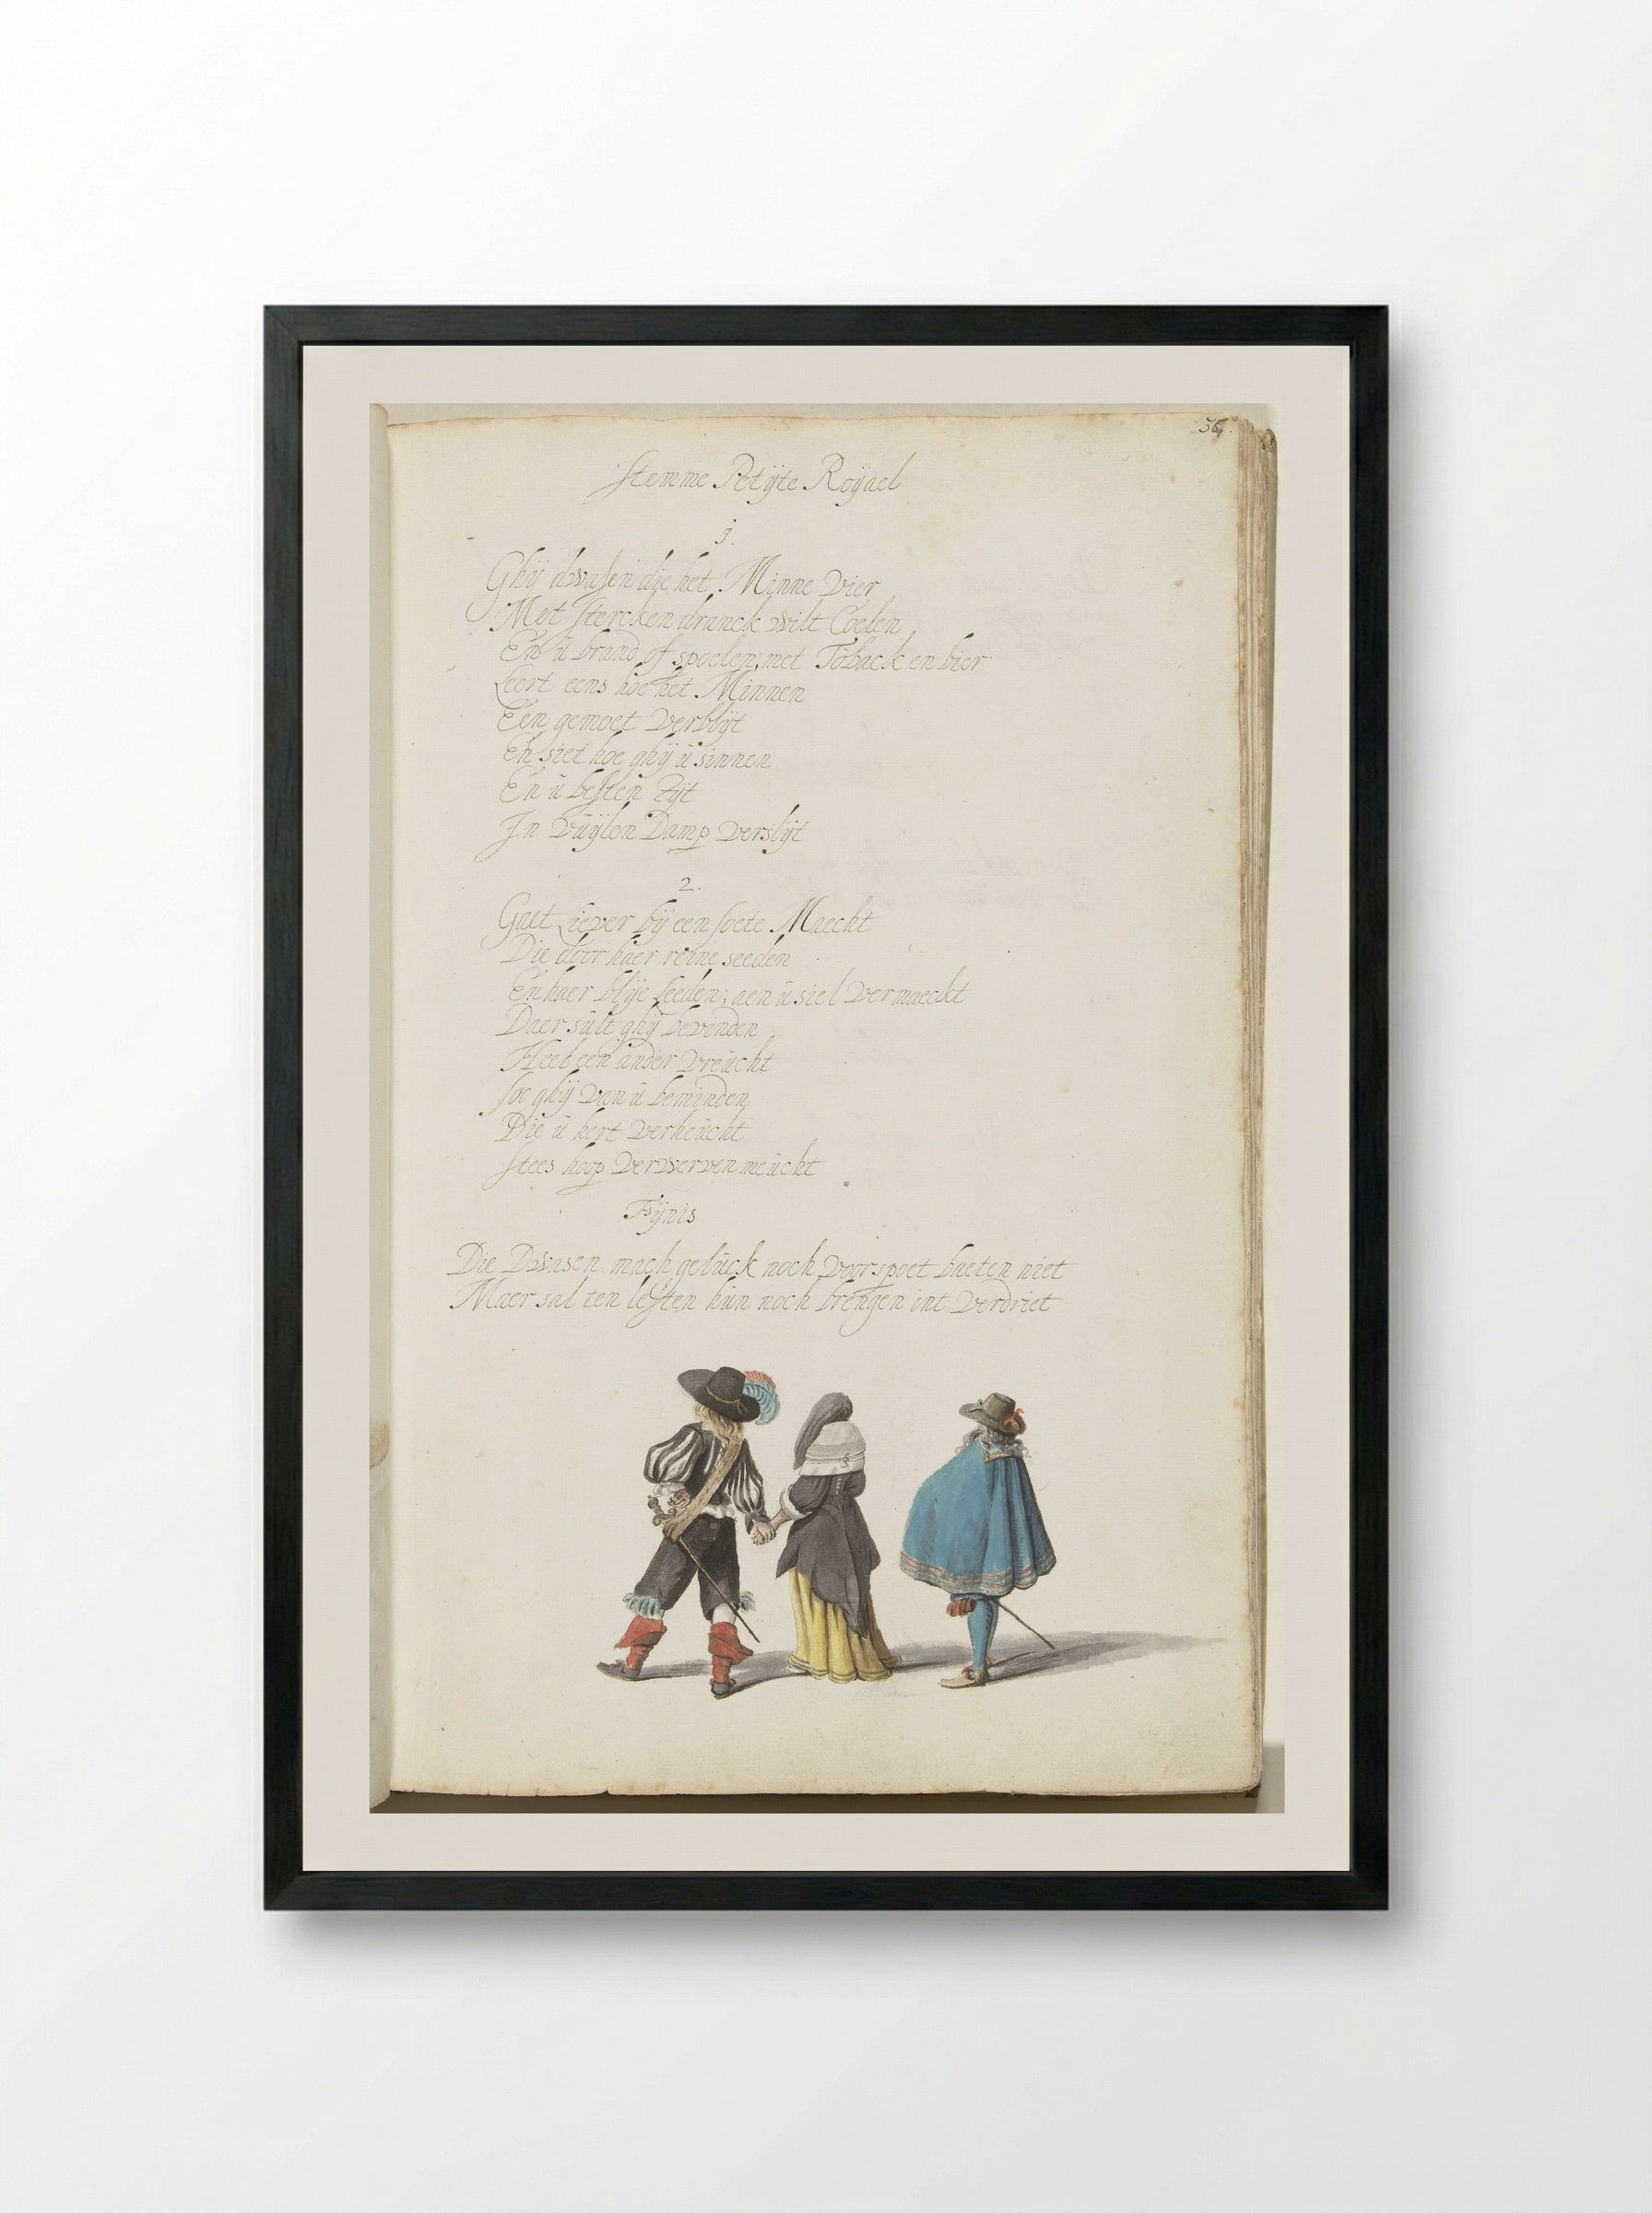 36
Stemme Petÿte Roÿael
1.
Ghÿ dwasen die het Minne Vier
Met stercken dranck wilt Coelen
En ü brand of spoelen; met Toback en bier
Leert eens hoe het Minnen
Een gemoet Verblÿt
En siet hoe ghÿ ü sinnen
En ü besten Zÿt
In Vüÿlen Damp Verslÿt
2.
Gaet Liever bÿ een soete Maecht
Die door haer reine seeden
En haer blÿe Leeden; aen ü siel Vermaeckt
Daer sült ghÿ bevinden
Heel een ander Vreücht
soo ghÿ Van ü beminden
Die ü hert Verheücht
Stees hoop Verwerven meücht
Fÿnis
Die Dwasen mach gelück noch Voorspoet baeten niet
Maer sal ten lesten hün noch brengen int Verdriet